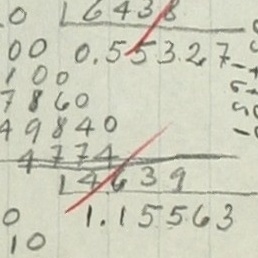 0 6438
00 0.55327
100
7860
49840
4774
14639
0 1.15563
10